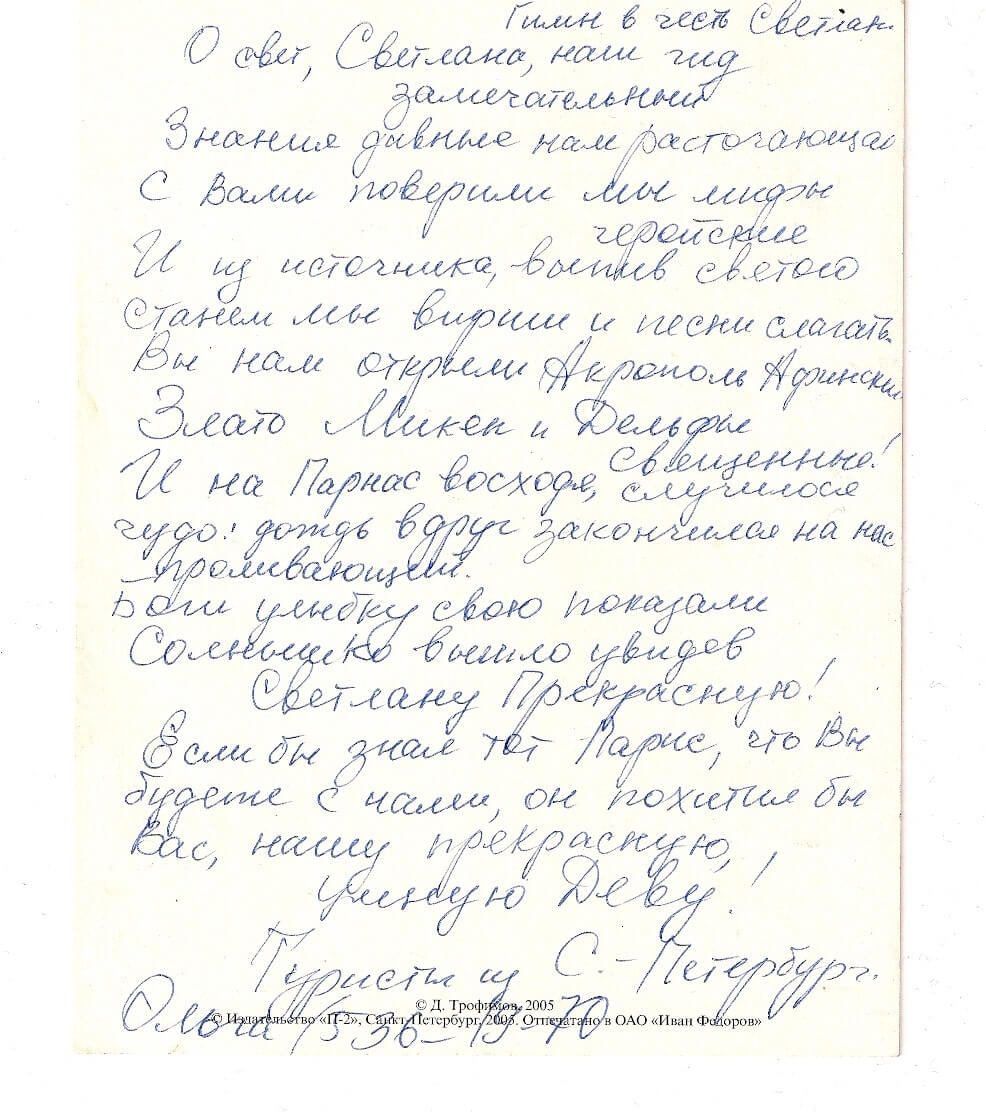 Гимн в честь Светлан.
О свет, Светлана, наш гид
замечательный
Знания дивные нам расточающая
С Вами поверили мы мифы
геройские
И из источника, выпив святого
станем мы вирши и песни слагать.
Вы нам открыли Акрополь Афинский
Злато Микен и Дельфы
священные!
И на Парнас восходя, случилося
чудо! дождь вдруг закончился на нас
проливающий.
Боги улыбку свою показали
Солнышко вышло увидев
Светлану Прекрасную!
Если бы знал тот Парис, что Вы
будете с нами, он похитил бы
Вас, нашу прекрасную,
умную Деву!
Туристы из С.-Петербург.
© Д. Трофимов, 2005
© Издательство «П-2», Санкт-Петербург, 2005. Отпечатано в ОАО «Иван Федоров»
Ольга